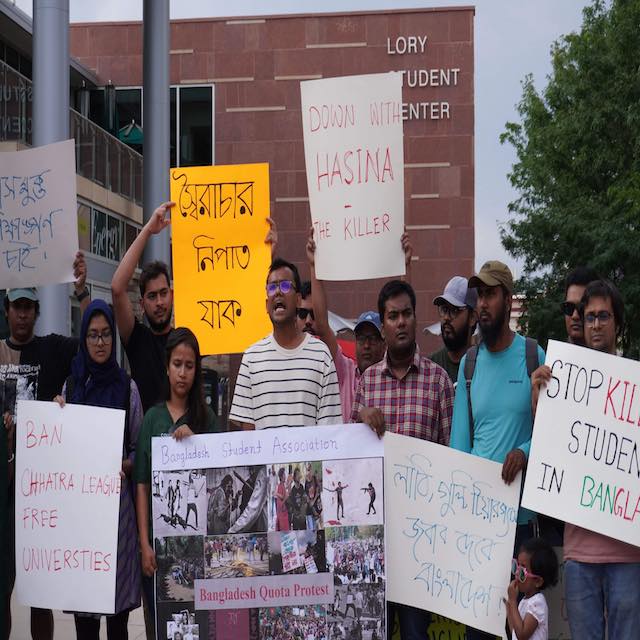 LORY
STUDENT
CENTER
DOWN WITH
HASINA
-
THE KILLER
স্বৈরাচার
নিপাত
যাক
চাই!
BAN
CHHATRA LEAGUE
FREE
UNIVERSTIES
Bangladesh Student Association
Bangladesh Quota Protest
লাঠি, গুলি, টিয়ারগ্যাস
জবাব দেবে
বাংলাদেশ!
STOP KIL
STUDEN
IN BANGLA